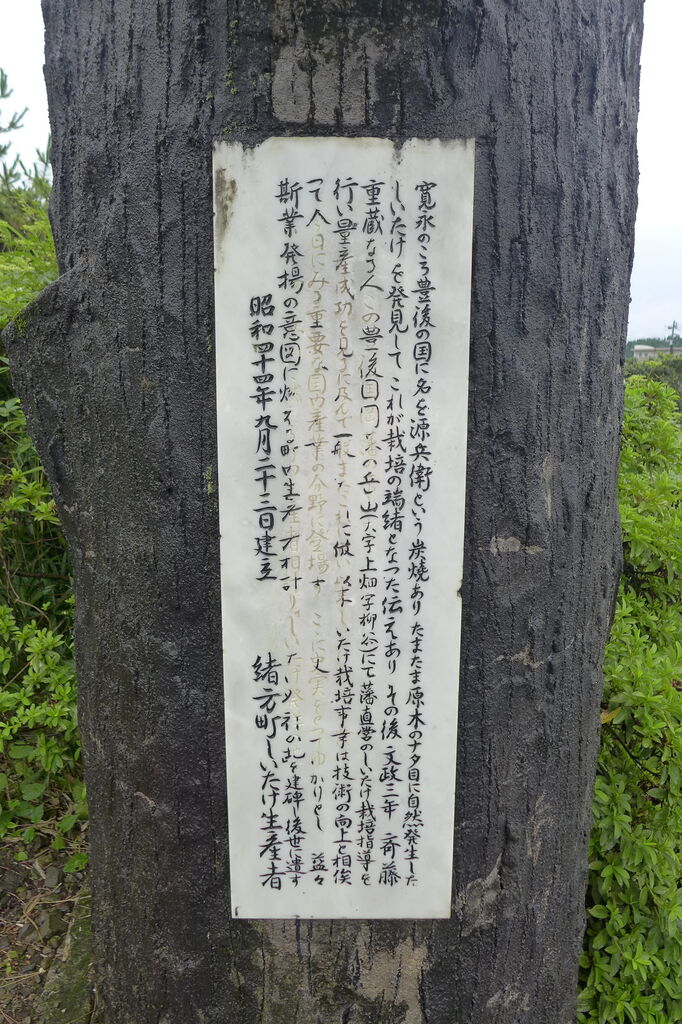 寛永のころ豊後の国に名を源兵衛という炭焼あり たまたま原木のナタ目に自然発生した
しいたけを発見して これが栽培の端緒となった伝えあり その後 文政三年 斉藤
重蔵なる人 この豊後国岡藩の 山(大字上畑字柳谷)にて藩直営のしいたけ栽培指導を
行い量産成功を見るに及んで 一般まだこれに倣い 以来しいたけ栽培事業は技術の向上と相俟
って 今日にみる重要な国内産業の分野に登場す ここに史実をとってゆかりとし 益々
斯業発揚の意図に燃える町内生産者相計り しいたけ発祥の地を建碑 後世に遺す
昭和四十四年九月二十三日建立 緒方町しいたけ生産者